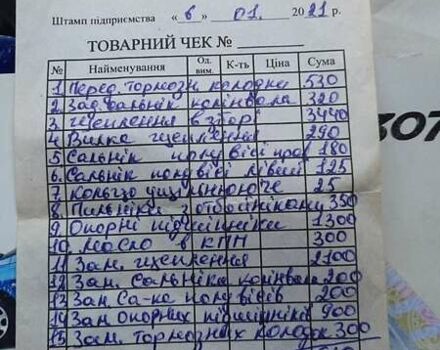 Штамп підприємства « 6 » 01. 2021 р.
ТОВАРНИЙ ЧЕК №
№ Найменування Од. вим. К-ть Ціна Сума
1 Перед. тормозн колодки 530
2. Зад. сальнік колінвала 320
3. Щеплення в зборі 3440
4 Вилка щеплення 290
5 Сальнік полувісі прав 180
6. Сальнік полувісі лівий 125
7 Кольцо ущільнююче 25
8. Пильніки з отбойніками 350
9 Опорні підшипніки 1300
10. Масло в КПП 300
11 Зам. щеплення 2100
12 Зам. Сальніка колінвала 200
13 Зам. Са-ка полувісів 200
14 Зам Опорних підшипніків 900
15 Зам. тормозных колодок 300
ЗОТ